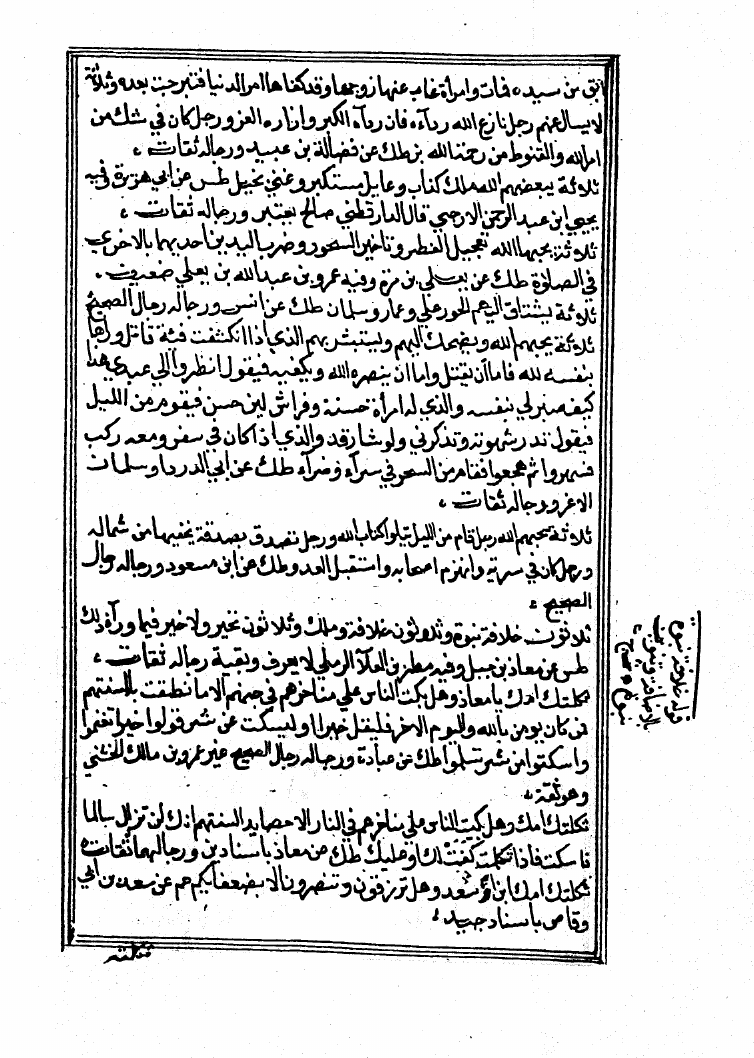 ابق من سيده فمات وامرأة غاب عنها زوجها وقد كفاها امر الدنيا فتبرجت بعده وثلاثة
لا يسال عنهم رجل نازع الله رداءه فان رداءه الكبر وازاره العز ورجل كان في شك من
امر الله والقنوط من رحمة الله بز طك عن فضالة بن عبيد ورجاله ثقات
ثلاثة يبغضهم الله ملك كذاب وعايل مستكبر وغني بخيل طس عن ابي هريرة فيه
يحيى ابن عبد الرحمن الارحبي قال الدارقطني صالح يعتبر ورجاله ثقات
ثلاثة يحبها الله تعجيل الفطر وتاخير السحور وضرب اليدين احديهما بالاخرى
في الصلاة طك عن يعلى بن مرة وفيه عمرو بن عبد الله بن يعلى ضعيف
ثلاثة يشتاق اليهم الحور علي وعمار وسلمان طك عن انس ورجاله رجال الصحيح
ثلاثة يحبهم الله ويضحك اليهم ويستبشر بهم الذي اذا انكشفت فئة قاتل وراها
بنفسه لله فاما ان يقتل واما ان ينصره الله ويكفيه فيقول انظروا الى عبدي هذا
كيف صبر لي بنفسه والذي له امرأة حسنة وفراش لين حسن فيقوم من الليل
فيقول يذر شهوته ويذكرني ولو شا رقد والذي اذا كان في سفر ومعه ركب
فسهروا ثم هجعوا فقام من السحر في سراء وضراء طك عن ابي الدردا وسلمان
الاغر ورجاله ثقات
ثلاثة يحبهم الله رجل قام من الليل يتلوا كتاب الله ورجل تصدق بصدقة يخفيها من شماله
ورجل كان في سرية وانهزم اصحابه واستقبل العدو طك عن ابن مسعود ورجاله رجال
الصحيح
ثلاثون خلافة نبوة وثلاثون خلافة وملك وثلاثون تجبر ولا خير فيما وراء ذلك
طس عن معاذ بن جبل وفيه مطر بن العلاء الرملي لا يعرف وبقية رجاله ثقات
ثكلتك امك يا معاذ وهل يكب الناس على مناخرهم في جهنم الا ما نطقت به السنتهم
فمن كان يومن بالله واليوم الاخر فليقل خيرا او ليسكت عن شر قولوا خيرا تغنموا
واسكتوا عن شر تسلموا طك عن عبادة ورجاله رجال الصحيح غير عمرو بن مالك الجنبي
وهو ثقة
ثكلتك امك وهل يكب الناس على مناخرهم في النار الا حصايد السنتهم انك لن تزال سالما
ما سكت فاذا تكلمت كتب لك او عليك طك عن معاذ باسنادين ورجالهما ثقات
ثكلتك امك ابن ام سعد وهل ترزقون وتنصرون الا بضعفايكم حم عن سعد بن ابي
وقاص باسناد جيد
قوله خلافة نبوة
بالاضافة